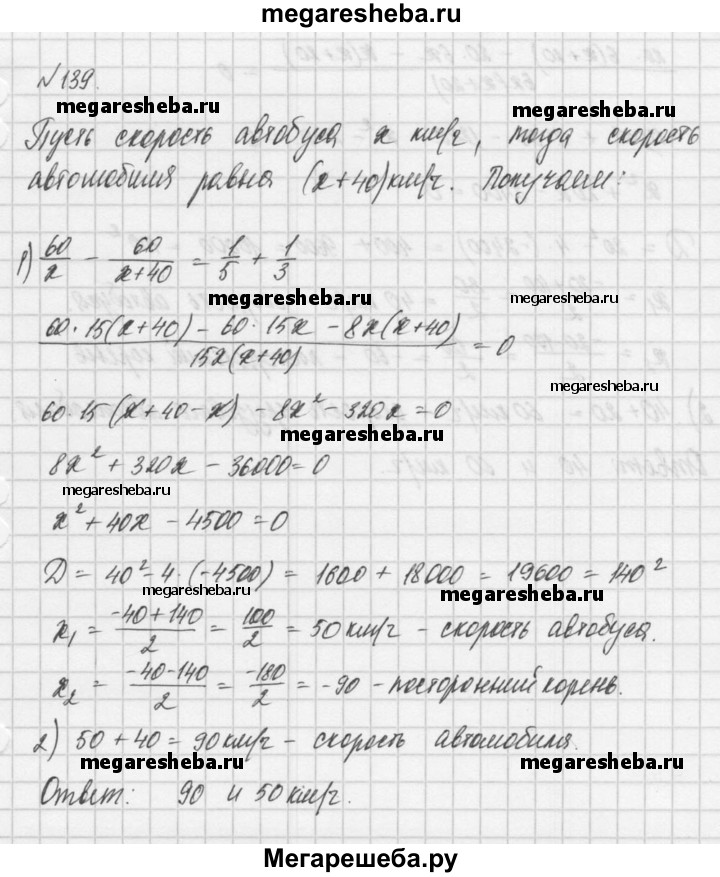 megaresheba.ru
№139.
megaresheba.ru
megaresheba.ru
Пусть скорость автобуса x км/ч, тогда скорость
автомобиля равна (x+40) км/ч. Получаем:
1) 60/x - 60/(x+40) = 1/5 + 1/3
megaresheba.ru
megaresheba.ru
(60·15(x+40) - 60·15x - 8x(x+40))/(15x(x+40)) = 0
megaresheba.ru
60·15(x+40-x) - 8x² - 320x = 0
megaresheba.ru
8x² + 320x - 36000 = 0
megaresheba.ru
x² + 40x - 4500 = 0
D = 40² - 4·(-4500) = 1600 + 18000 = 19600 = 140²
megaresheba.ru
megaresheba.ru
x₁ = (-40+140)/2 = 100/2 = 50 км/ч - скорость автобуса.
x₂ = (-40-140)/2 = -180/2 = -90 - посторонний корень.
2) 50 + 40 = 90 км/ч - скорость автомобиля.
megaresheba.ru
megaresheba.ru
Ответ: 90 и 50 км/ч.
Мегарешеба.ру